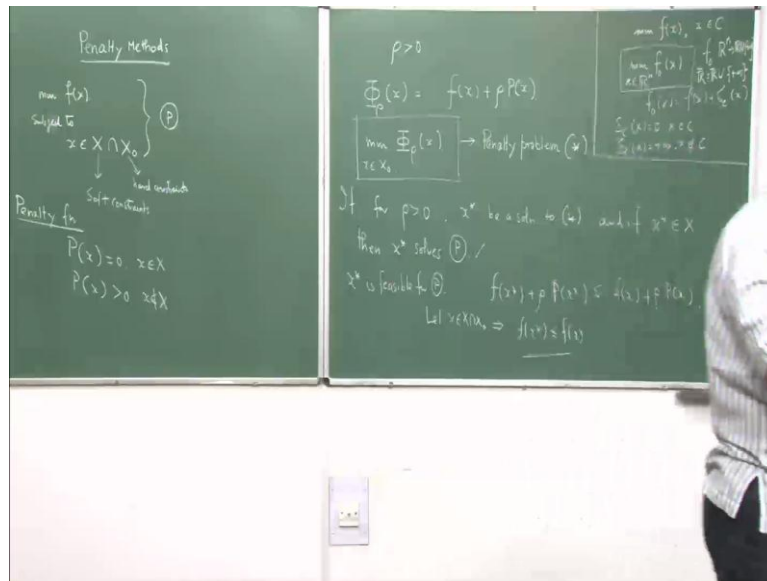 Penalty Methods
min f(x)
subject to
x ∈ X ∩ X₀
} (P)
hard constraints
Soft constraints
Penalty fn
P(x) = 0 x ∈ X
P(x) > 0 x ∉ X
ρ > 0
Φ_ρ(x) = f(x) + ρ P(x)
min Φ_ρ(x) → Penalty problem (*)
x ∈ X₀
If for ρ > 0, x* be a soln to (*) and if x* ∈ X
then x* solves (P).
x* is feasible for (P). f(x*) + ρ P(x*) ≤ f(x) + ρ P(x)
Let x ∈ X ∩ X₀ ⇒ f(x*) ≤ f(x)
min f(x), x ∈ C
min f₀(x)
x ∈ ℝⁿ